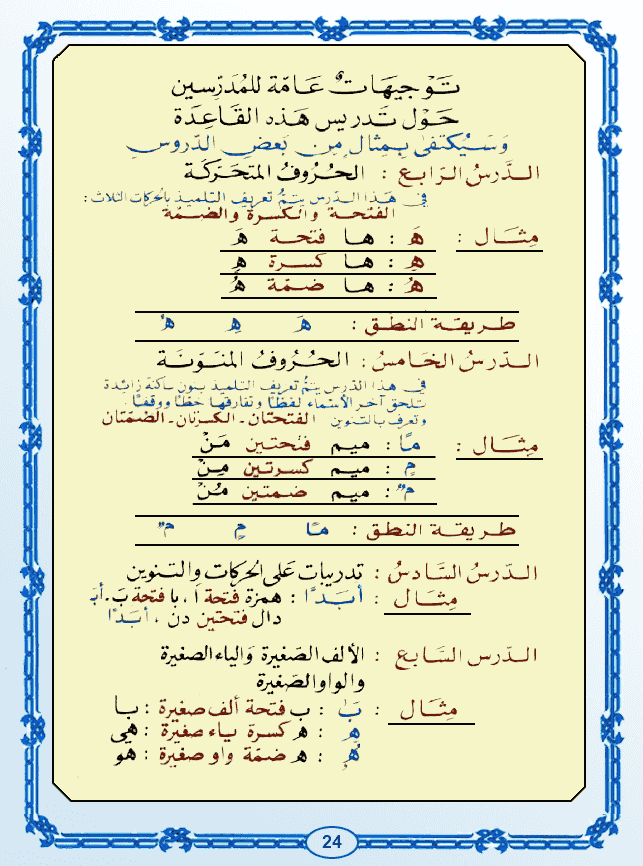 تَوْجِيهَاتٌ عَامّة للمُدَرِّسين
حَوْل تَدريس هَذه القَاعِدَة
وَسَيُكتفىٰ بِمِثال مِن بَعضِ الدّروسِ
الدَّرسُ الرَّابع : الحُرُوفُ المتحَرّكَة
في هَذا الدّرس يَتمُّ تعريف التلميذ بالحركات الثلاث :
الفتحة والكسرة والضمّة
مِثَال : هَ : ها فتحة هَ
هِ : ها كسرة هِ
هُ : ها ضمّة هُ
طريقة النطق : هَ هِ هُ
الدّرسُ الخَامسُ : الحُرُوفُ المنَوّنَة
في هذا الدّرس يتمُّ تعريف التلميذ بنون ساكنة زائدة
تلحق آخر الأسماء لفظًا وتفارقها خطًا ووقفًا
وتعرف بالتنوين الفتحتان - الكسرتان - الضمّتان
مِثَال : مًا : ميم فتحتين مَنْ
مٍ : ميم كسرتين مِنْ
مٌ : ميم ضمتين مُنْ
طريقة النطق : مًا مٍ مٌ
الدّرسُ السَّادسُ : تدريبات على الحركات والتنوين
مِثَال : أَبَدًا : همزة فتحة أ ، با فتحة بَ . أبَ
دال فتحتين دن ، أبدًا
الدّرسُ السَّابع : الألف الصَّغيرة والياء الصَّغيرة
والواو الصَّغيرة
مِثَال : بَٰ : ب فتحة ألف صغيرة : با
هِۦ : ه كسرة ياء صغيرة : هي
هُۥ : ه ضمّة واو صغيرة : هو
24